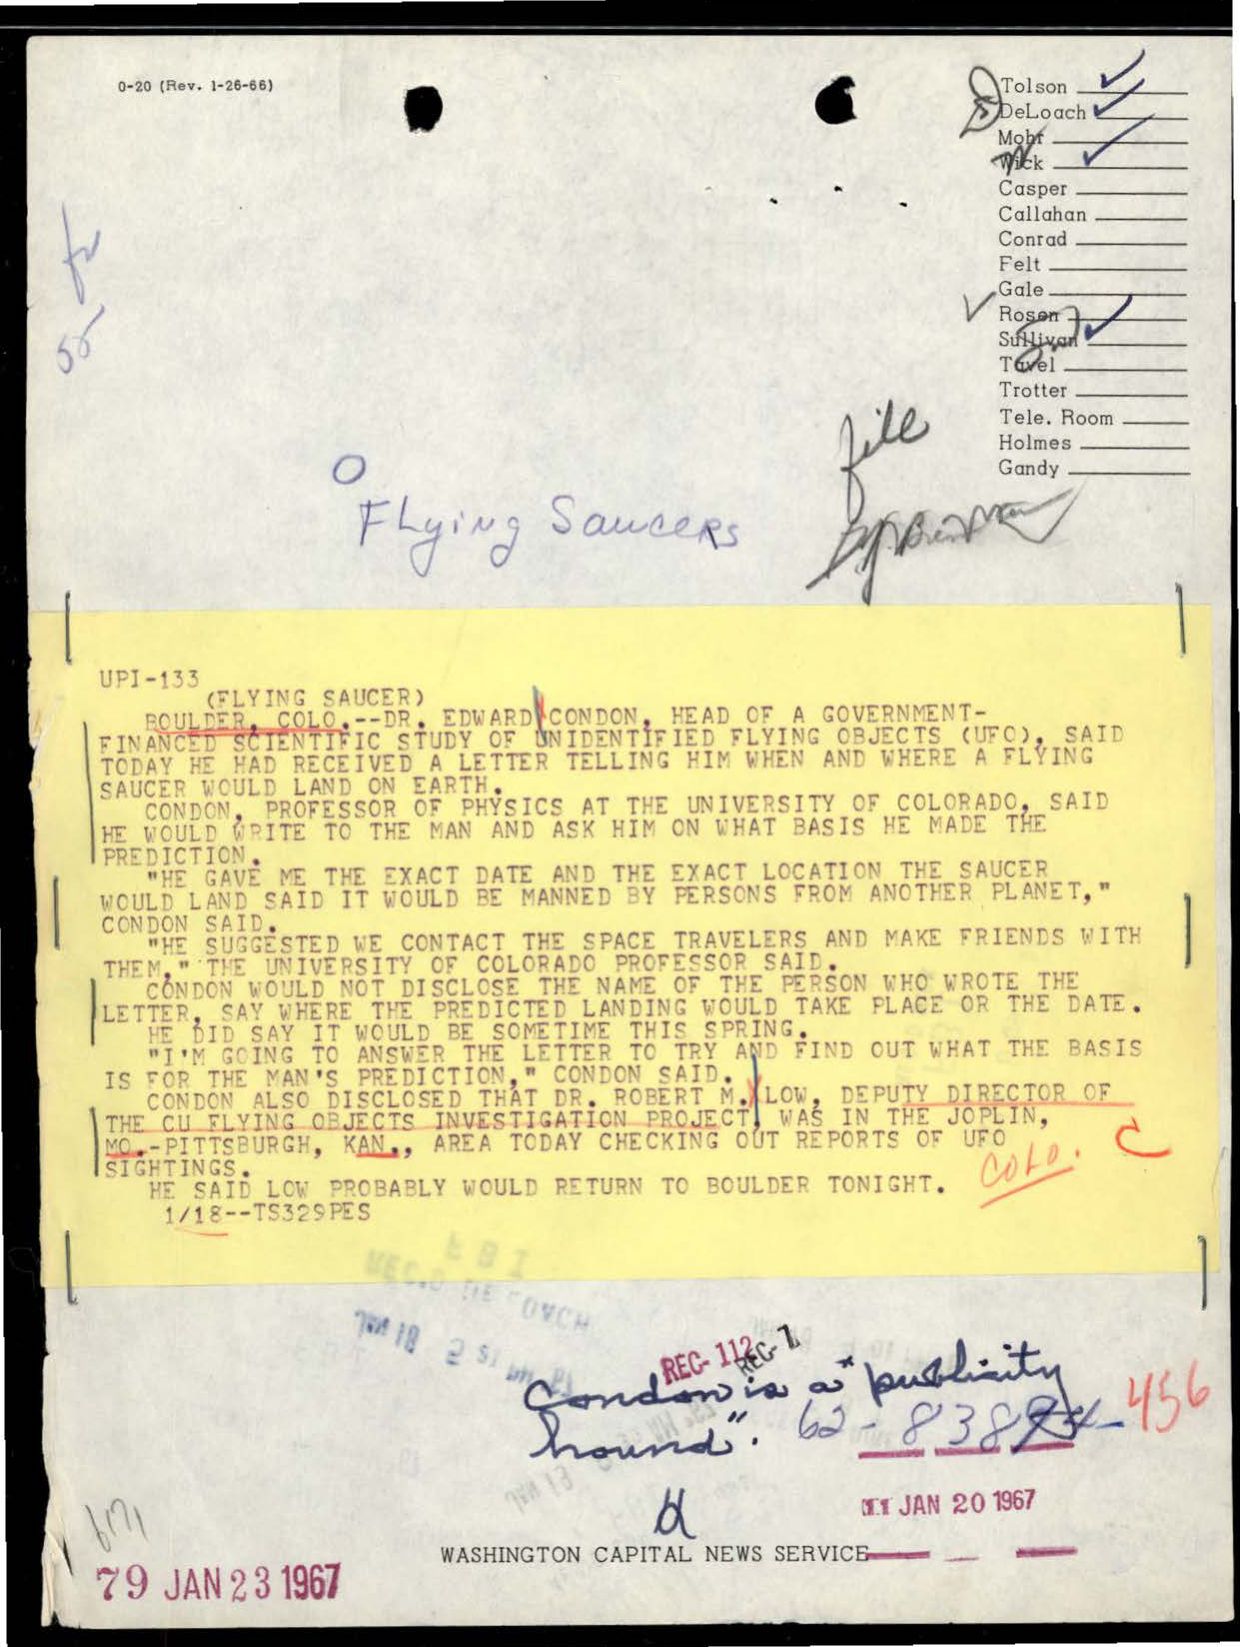 0-20 (Rev. 1-26-66)
Tolson
DeLoach
Mohr
Wick
Casper
Callahan
Conrad
Felt
Gale
Rosen
Sullivan
Tavel
Trotter
Tele. Room
Holmes
Gandy
file
Flying Saucers
UPI-133
(FLYING SAUCER)
BOULDER, COLO.--DR. EDWARD CONDON, HEAD OF A GOVERNMENT-
FINANCED SCIENTIFIC STUDY OF UNIDENTIFIED FLYING OBJECTS (UFO), SAID
TODAY HE HAD RECEIVED A LETTER TELLING HIM WHEN AND WHERE A FLYING
SAUCER WOULD LAND ON EARTH.
CONDON, PROFESSOR OF PHYSICS AT THE UNIVERSITY OF COLORADO, SAID
HE WOULD WRITE TO THE MAN AND ASK HIM ON WHAT BASIS HE MADE THE
PREDICTION.
"HE GAVE ME THE EXACT DATE AND THE EXACT LOCATION THE SAUCER
WOULD LAND SAID IT WOULD BE MANNED BY PERSONS FROM ANOTHER PLANET,"
CONDON SAID.
"HE SUGGESTED WE CONTACT THE SPACE TRAVELERS AND MAKE FRIENDS WITH
THEM," THE UNIVERSITY OF COLORADO PROFESSOR SAID.
CONDON WOULD NOT DISCLOSE THE NAME OF THE PERSON WHO WROTE THE
LETTER, SAY WHERE THE PREDICTED LANDING WOULD TAKE PLACE OR THE DATE.
HE DID SAY IT WOULD BE SOMETIME THIS SPRING.
"I'M GOING TO ANSWER THE LETTER TO TRY AND FIND OUT WHAT THE BASIS
IS FOR THE MAN'S PREDICTION," CONDON SAID.
CONDON ALSO DISCLOSED THAT DR. ROBERT M. LOW, DEPUTY DIRECTOR OF
THE CU FLYING OBJECTS INVESTIGATION PROJECT, WAS IN THE JOPLIN,
MO.-PITTSBURGH, KAN., AREA TODAY CHECKING OUT REPORTS OF UFO
SIGHTINGS.
COLO. C
HE SAID LOW PROBABLY WOULD RETURN TO BOULDER TONIGHT.
1/18--TS329PES
REC- 112
REC- 1
Condon is a "publicity
hound".
62-83894-456
H
JAN 20 1967
WASHINGTON CAPITAL NEWS SERVICE
79 JAN 23 1967